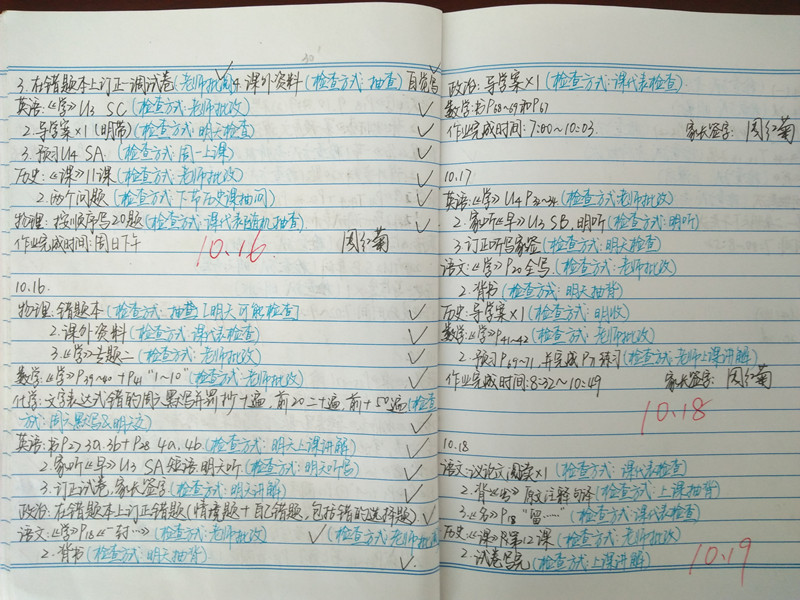 3.在错题本上订正一调试卷(老师批阅)4.课外资料(检查方式:抽查)
英语:《学》U3 SC(检查方式:老师批改)
2.导学案×1(明带)(检查方式:明天检查)
3.预习U4 SA.(检查方式:周一上课)
历史:《课》11课(检查方式:老师批改)
2.两个问题(检查方式:下节历史课抽问)
物理:按顺序写20题(检查方式:课代表随机抽查)
作业完成时间:周日下午 10.16
10.16.
物理.错题本(检查方式:抽查)[明天可能检查]
2.课外资料(检查方式:课代表检查)
3.《学》专题二(检查方式:老师批改)
数学:《学》P39~40+P41 "1~10"(检查方式:老师批改)
化学:文字表达式错的周六默写并罚抄十遍,前20二十遍,前十50遍(检查
方式:周六默写及明交)
英语:书P27 3a.3b+P28 4a.4b(检查方式:明天上课讲解)
2.家听《早》U3 SA短语.明天听(检查方式:明天听写)
3.订正试卷,家长签字(检查方式:明天讲解)
政治:在错题本上订正错题(情境题+自己错题,包括错的选择题)
语文:《学》P18《一封…》(检查方式:老师批改) (检查方式:老师批阅)
2.背书(检查方式:明天抽背)
政治:导学案×1(检查方式:课代表检查)
数学:书P68~69和P67
作业完成时间:7:00~10:03. 家长签字:周红菊
10.17
英语:《学》U4 P32~34(检查方式:老师批改)
2.家听《早》U3 SB,明听(检查方式:明听)
3.订正听写家签(检查方式:明天检查)
语文:《学》P20全写(检查方式:老师批改)
2.背书(检查方式:明天抽背)
历史:导学案×1(检查方式:明收)
数学:《学》P41~42(检查方式:老师批改)
2.预习P69~71,并完成P71练习(检查方式:老师上课讲解)
作业完成时间:8:32~10:49 家长签字:周红菊
10.18
10.18
语文:议论文阅读×1(检查方式:课代表检查)
2.背《出》原文注释句译(检查方式:上课抽背)
3.《名》P18"留……"(检查方式:课代表检查)
历史:《课》第12课(检查方式:老师批改)
2.试卷写完(检查方式:上课讲解) 10.19